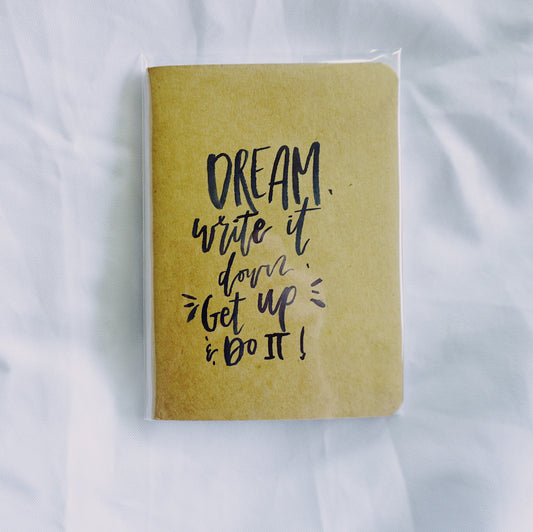 DREAM.
write it
down.
Get up
& Do IT!